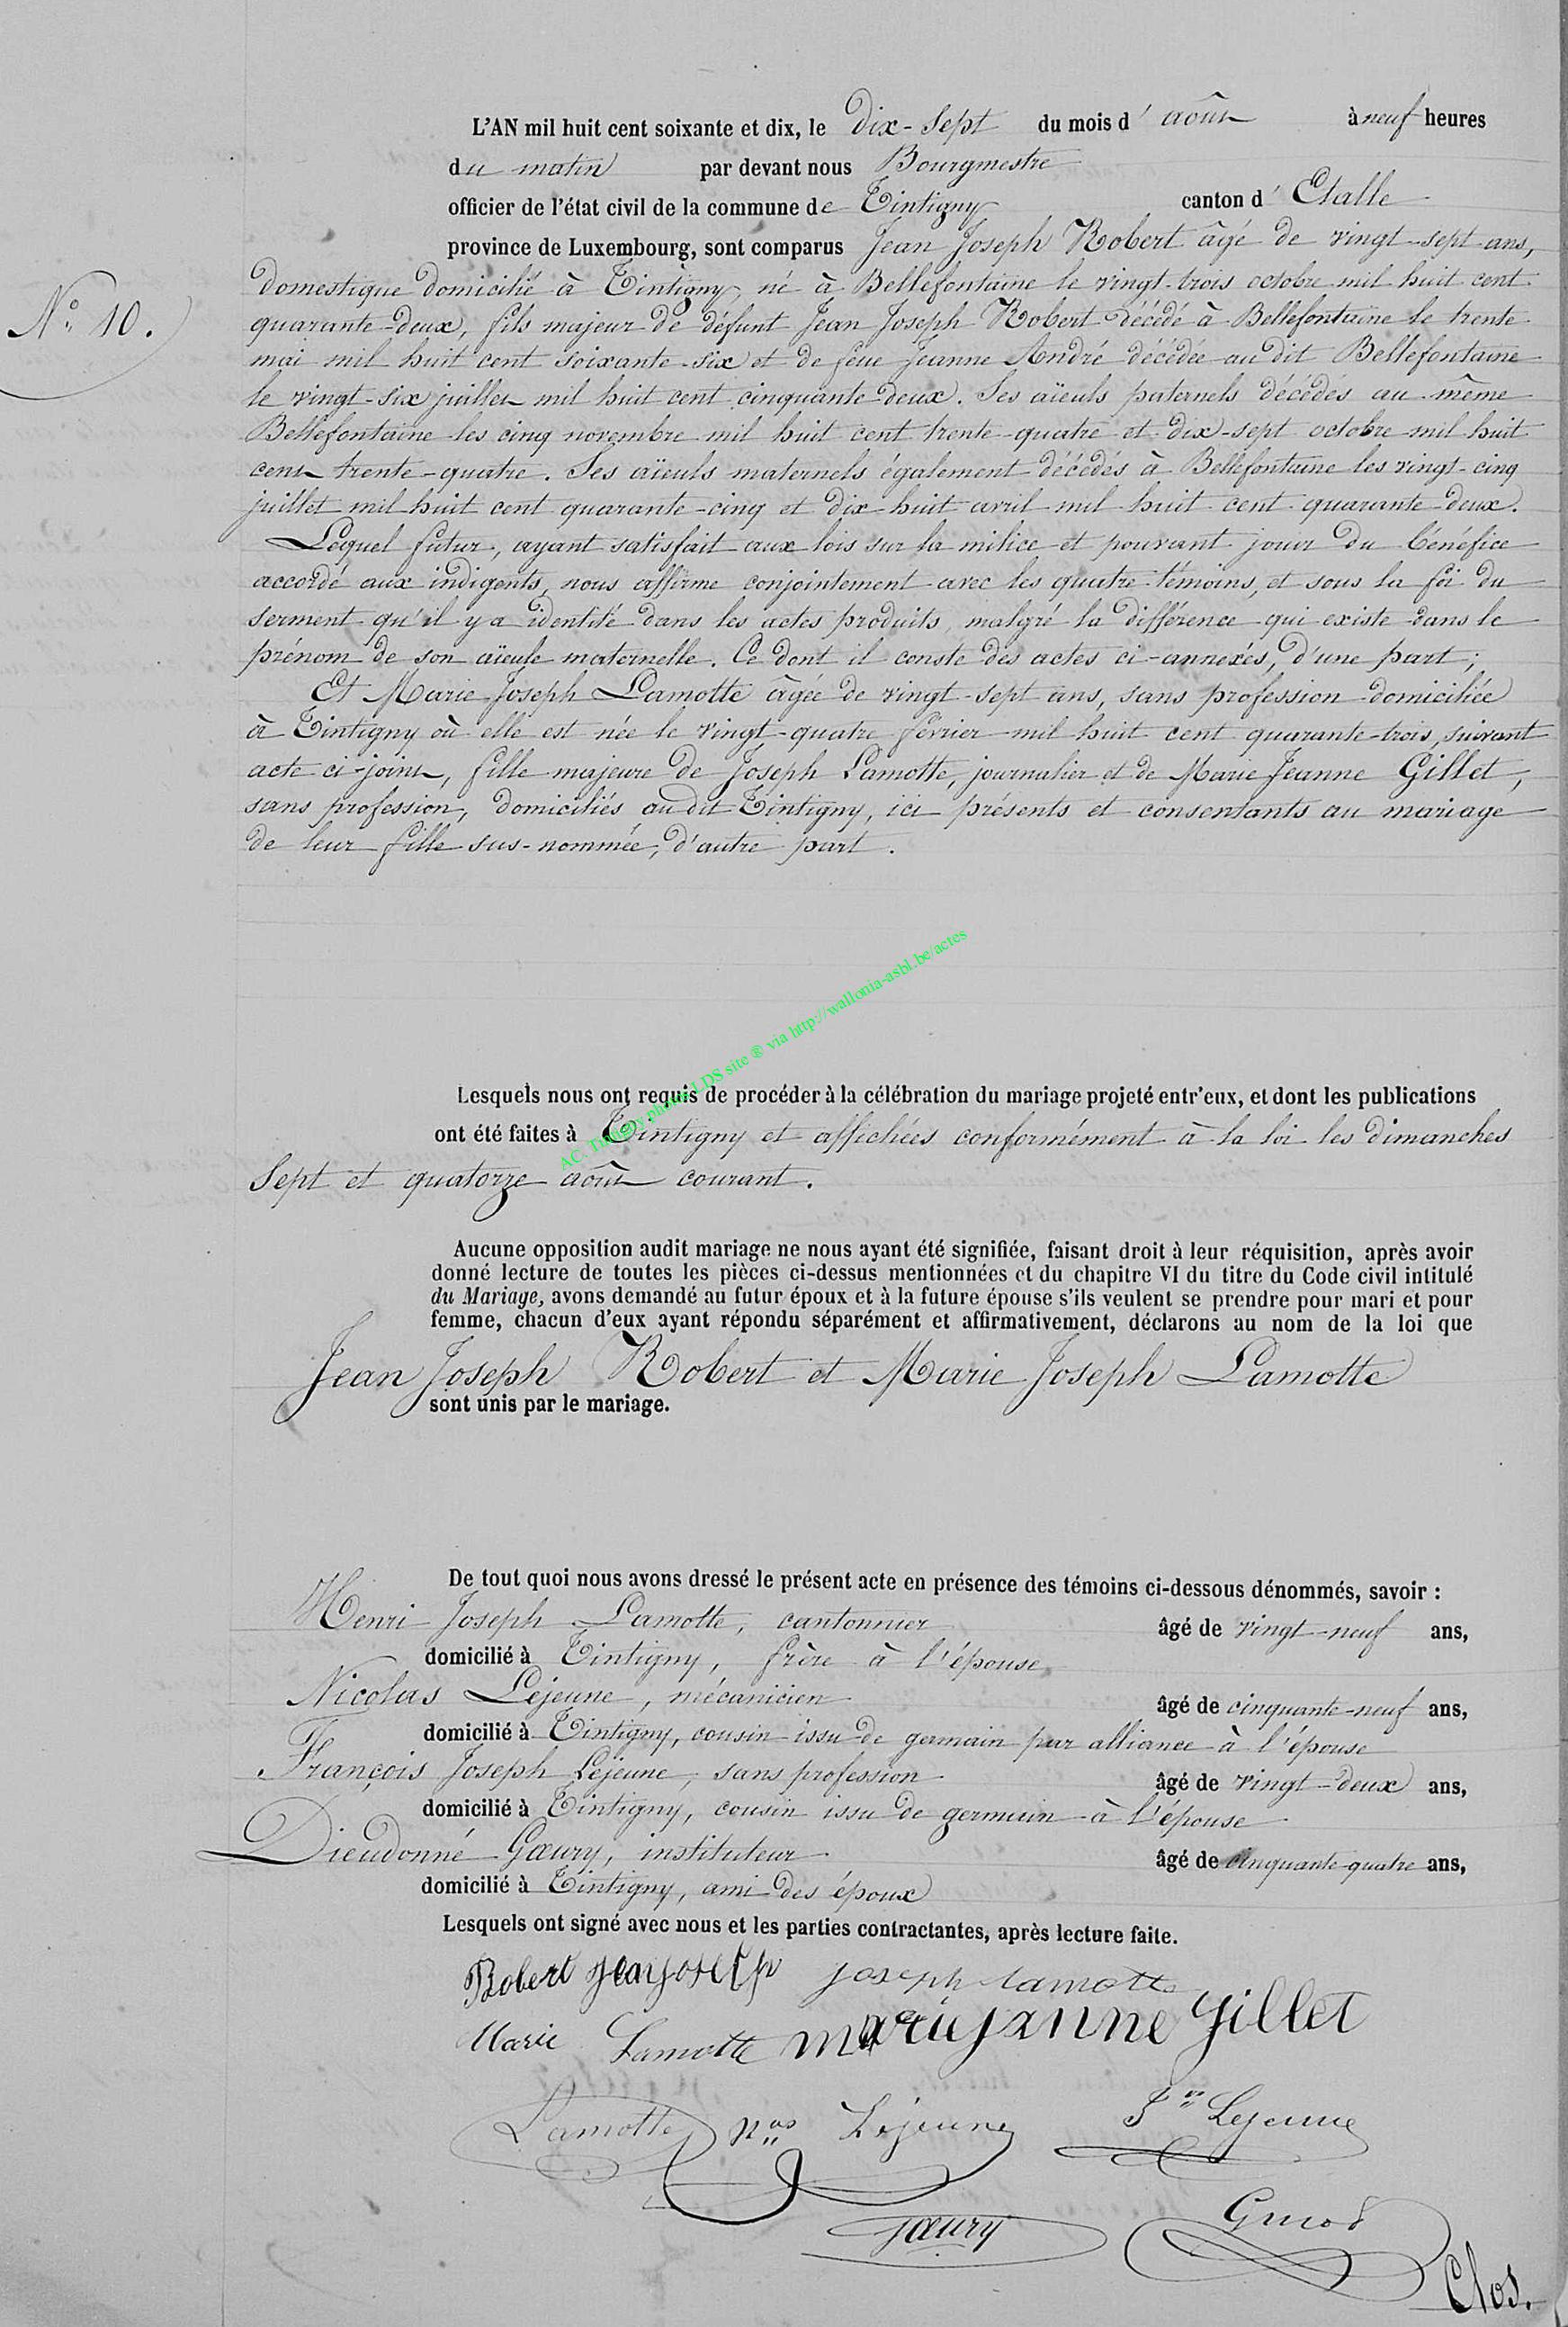 L'AN mil huit cent soixante et dix, le dix-sept du mois d'août à neuf heures
du matin par devant nous Bourgmestre
officier de l'état civil de la commune de Tintigny canton d'Etalle
province de Luxembourg, sont comparus Jean Joseph Robert âgé de vingt-sept ans,
domestique domicilié à Tintigny, né à Bellefontaine le vingt-trois octobre mil huit cent
N° 10.
quarante-deux, fils majeur de défunt Jean Joseph Robert décédé à Bellefontaine le trente
mai mil huit cent soixante-six et de feue Jeanne André décédée au dit Bellefontaine
le vingt-six juillet mil huit cent cinquante deux. Ses aïeuls paternels décédés au même
Bellefontaine les cinq novembre mil huit cent trente-quatre et dix-sept octobre mil huit
cent trente-quatre. Ses aïeuls maternels également décédés à Bellefontaine les vingt-cinq
juillet mil huit cent quarante-cinq et dix-huit avril mil huit cent quarante deux.
Lequel futur, ayant satisfait aux lois sur la milice et pouvant jouir du bénéfice
accordé aux indigents, nous affirme conjointement avec les quatre témoins, et sous la foi du
serment qu'il y a identité dans les actes produits, malgré la différence qui existe dans le
prénom de son aïeule maternelle. Ce dont il conste des actes ci-annexés, d'une part;
Et Marie Joseph Lamotte âgée de vingt-sept ans, sans profession domiciliée
à Tintigny où elle est née le vingt-quatre février mil huit cent quarante-trois, suivant
acte ci-joint, fille majeure de Joseph Lamotte, journalier et de Marie Jeanne Gillet,
sans profession, domiciliés au dit Tintigny, ici présents et consentants au mariage
de leur fille sus-nommée, d'autre part.
AC. Tintigny photos LDS site ® via http://wallonia-asbl.be/actes
Lesquels nous ont requis de procéder à la célébration du mariage projeté entr'eux, et dont les publications
ont été faites à Tintigny et affichées conformément à la loi les dimanches
sept et quatorze août courant.
Aucune opposition audit mariage ne nous ayant été signifiée, faisant droit à leur réquisition, après avoir
donné lecture de toutes les pièces ci-dessus mentionnées et du chapitre VI du titre du Code civil intitulé
du Mariage, avons demandé au futur époux et à la future épouse s'ils veulent se prendre pour mari et pour
femme, chacun d'eux ayant répondu séparément et affirmativement, déclarons au nom de la loi que
Jean Joseph Robert et Marie Joseph Lamotte
sont unis par le mariage.
De tout quoi nous avons dressé le présent acte en présence des témoins ci-dessous dénommés, savoir :
Henri Joseph Lamotte, cantonnier âgé de vingt-neuf ans,
domicilié à Tintigny, frère à l'épouse
Nicolas Lejeune, mécanicien âgé de cinquante-neuf ans,
domicilié à Tintigny, cousin issu de germain par alliance à l'épouse
François Joseph Lejeune, sans profession âgé de vingt-deux ans,
domicilié à Tintigny, cousin issu de germain à l'épouse
Dieudonné Gœury, instituteur âgé de cinquante-quatre ans,
domicilié à Tintigny, ami des époux
Lesquels ont signé avec nous et les parties contractantes, après lecture faite.
Robert Jean joseph joseph lamotte
Marie Lamotte marie janne gillet
Lamotte Nas Lejeune Fs Lejeune
gœury
Clos.